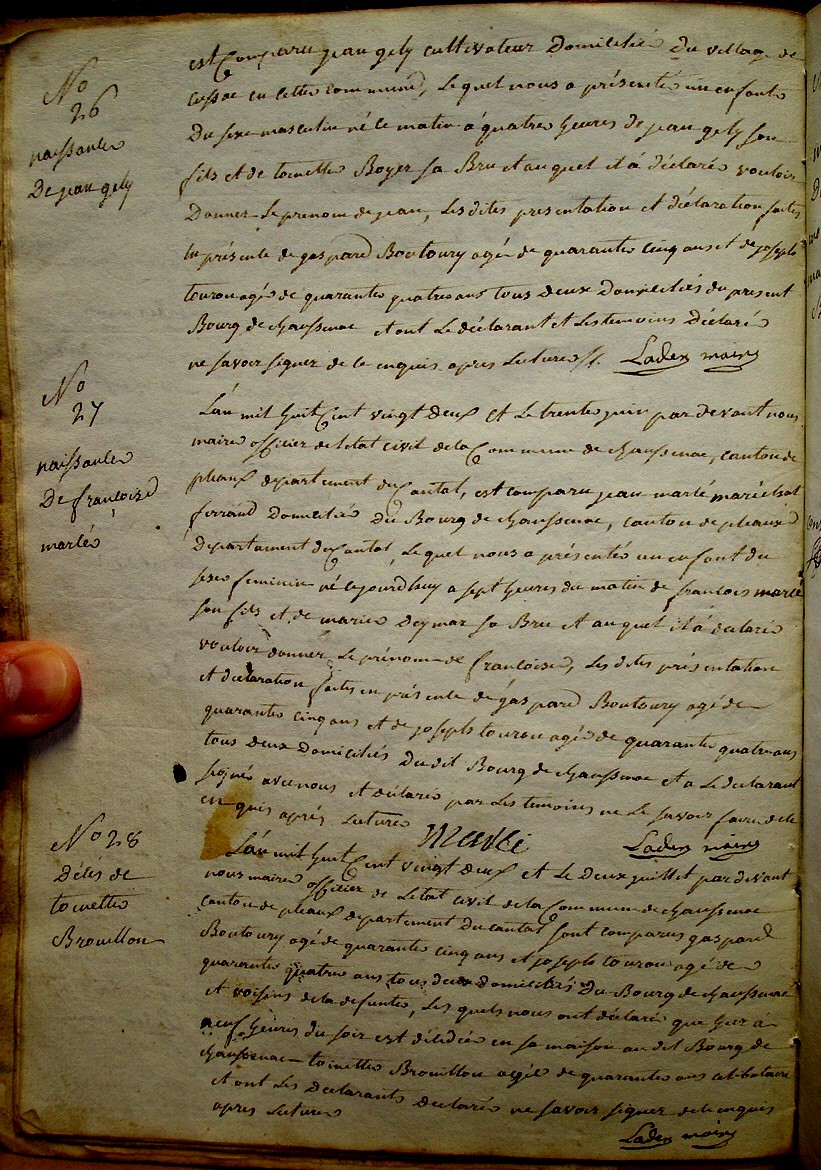 No
26
naissance
De jean gely
est Comparu jean gely cultivateur Domicilié du village de
cussac en cette commune, Lequel nous a présenté un enfant
Du sexe masculin né ce matin a quatre heures de jean gely son
fils et de toinette Boyer sa Bru et auquel il a déclaré vouloir
Donner Le prenom de jean, Les dites presentation et déclaration faites
en présence de gaspard Boutoury agé de quarante cinq ans et de joseph
touron agé de quarante quatre ans tous deux Domiciliés du present
Bourg de chaussenac et ont Le déclarant et Les temoins Déclaré
ne savoir signer de ce enquis apres Lecture //. Laden maire
No
27
naissance
De françoise
marlé
L'an mil huit Cent vingt deux et Le trente juin par devant nous
maire officier de l'etat civil de la Commune de chaussenac, canton de
pleaux departement du Cantal, est comparu jean marlé maréchal
ferrand Domicilié Du Bourg de chaussenac, canton de pleaux
Departement du Cantal, Lequel nous a présenté un enfant du
sexe feminin né cejourdhuy a sept heures du matin de françois marlé
son fils et de marie Deymar sa Bru et auquel il a déclaré
vouloir donner Le prénom de françoise, Les dites présentation
et déclaration faites en présence de gaspard Boutoury agé de
quarante cinq ans et de joseph touron agé de quarante quatre ans
tous deux Domiciliés Du dit Bourg de chaussenac et a Le declarant
signé avec nous et déclaré par Les temoins ne Le savoir faire de ce
en quis après Lecture Laden maire
No 28
Décés de
toinette
Brouillon
L'an mil huit Cent vingt deux et Le deux juillet par devant
nous maire officier de L'etat civil de la Commune de chaussenac
canton de pleaux departement du cantal sont comparus gaspard
Boutoury agé de quarante cinq ans et joseph touron agé de
quarante quatre ans tous deux domiciliés Du Bourg de chaussenac
et voisins de la defunte, Les quels nous ont déclaré que hier à
neuf heures du soir est décédée en sa maison au dit Bourg de
chaussenac toinette Brouillon agée de quarante ans celibataire
et ont Les Declarants declaré ne savoir signer de ce enquis
apres Lecture
Laden maire